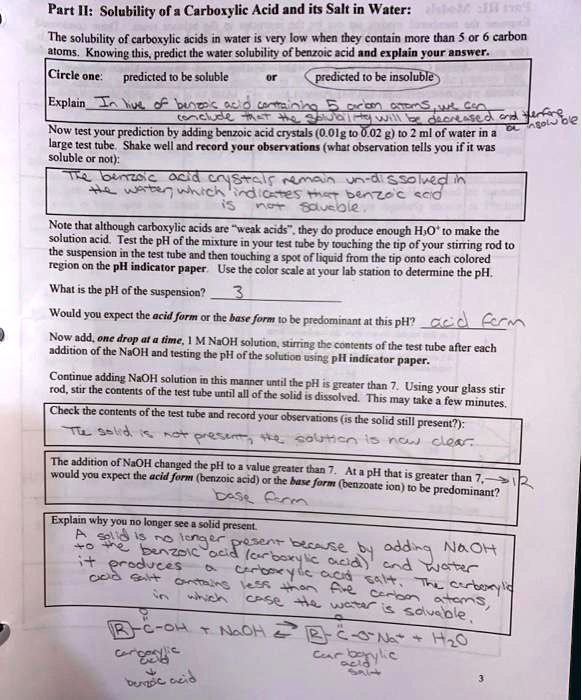 Part II: Solubility of a Carboxylic Acid and its Salt in Water:
The solubility of carboxylic acids in water is very low when they contain more than 5 or 6 carbon
atoms. Knowing this, predict the water solubility of benzoic acid and explain your answer.
Circle one: predicted to be soluble or predicted to be insoluble
Explain In live of benzoic acid containing 5 carbon atoms, we can
conclude that the solubility will be decreased and therfore
be insoluble
Now test your prediction by adding benzoic acid crystals (0.01g to 0.02 g) to 2 ml of water in a
large test tube. Shake well and record your observations (what observation tells you if it was
soluble or not):
The benzoic acid crystals remain un-dissolved in
the water, which indicates that benzoic acid
is not soluable.
Note that although carboxylic acids are "weak acids", they do produce enough H3O+ to make the
solution acid. Test the pH of the mixture in your test tube by touching the tip of your stirring rod to
the suspension in the test tube and then touching a spot of liquid from the tip onto each colored
region on the pH indicator paper. Use the color scale at your lab station to determine the pH.
What is the pH of the suspension? 3
Would you expect the acid form or the base form to be predominant at this pH? acid form
Now add, one drop at a time, 1 M NaOH solution, stirring the contents of the test tube after each
addition of the NaOH and testing the pH of the solution using pH indicator paper.
Continue adding NaOH solution in this manner until the pH is greater than 7. Using your glass stir
rod, stir the contents of the test tube until all of the solid is dissolved. This may take a few minutes.
Check the contents of the test tube and record your observations (is the solid still present?):
The solid is not present, the solution is now clear.
The addition of NaOH changed the pH to a value greater than 7. At a pH that is greater than 7, → 12
would you expect the acid form (benzoic acid) or the base form (benzoate ion) to be predominant?
base form
Explain why you no longer see a solid present.
A solid is no longer present because by adding NaOH
to the benzoic acid (carboxylic acid) and water
it produces a carboxylic acid salt. The carboxylic
acid salt contains less than five carbon atoms,
in which case the water is soluable.
O O
R-C-OH + NaOH ⇄ R-C-O-Na+ + H2O
carboxylic acid carboxylic acid salt
↓
benzoic acid
3